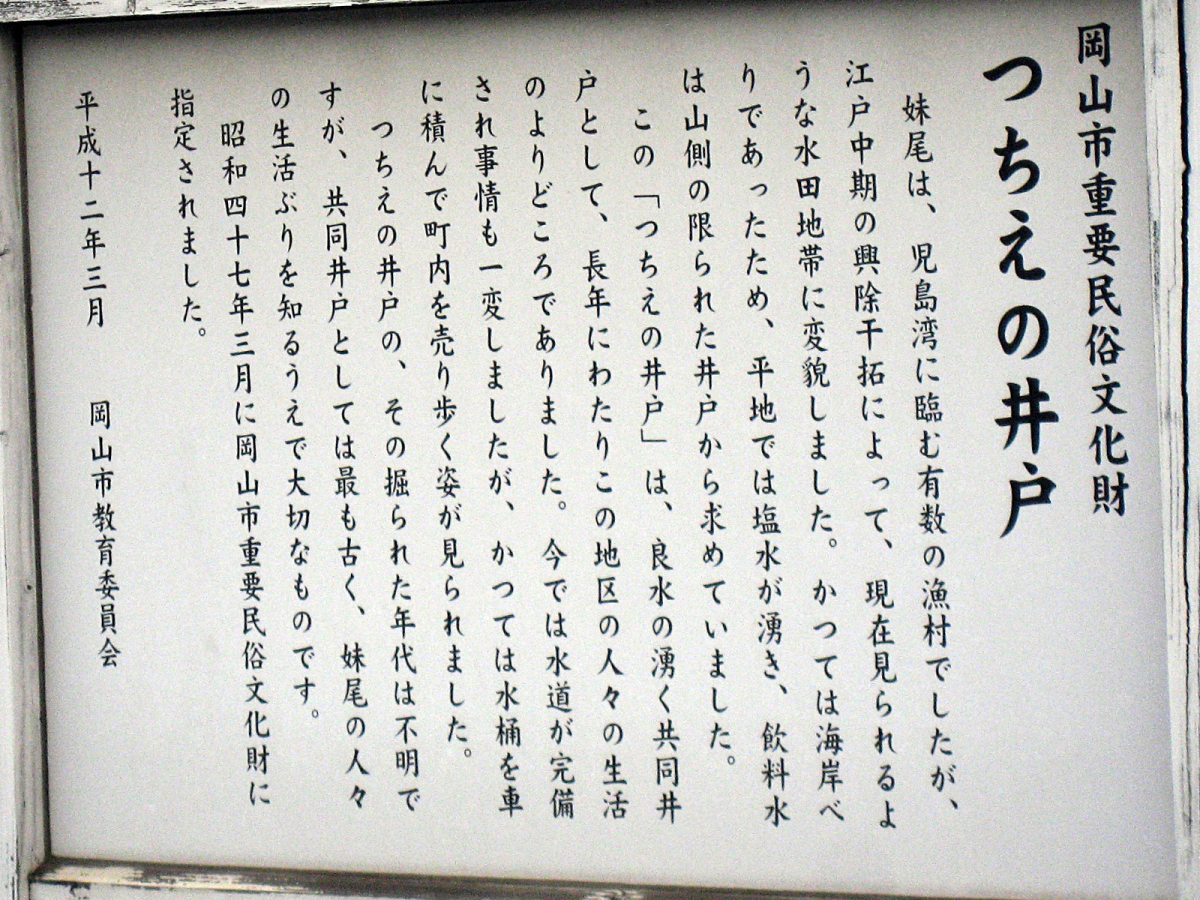 岡山市重要民俗文化財
つちえの井戸
妹尾は、児島湾に臨む有数の漁村でしたが、
江戸中期の興除干拓によって、現在見られるよ
うな水田地帯に変貌しました。かつては海岸べ
りであったため、平地では塩水が湧き、飲料水
は山側の限られた井戸から求めていました。
この「つちえの井戸」は、良水の湧く共同井
戸として、長年にわたりこの地区の人々の生活
のよりどころでありました。今では水道が完備
され事情も一変しましたが、かつては水桶を車
に積んで町内を売り歩く姿が見られました。
つちえの井戸の、その掘られた年代は不明で
すが、共同井戸としては最も古く、妹尾の人々
の生活ぶりを知るうえで大切なものです。
昭和四十七年三月に岡山市重要民俗文化財に
指定されました。
平成十二年三月 岡山市教育委員会